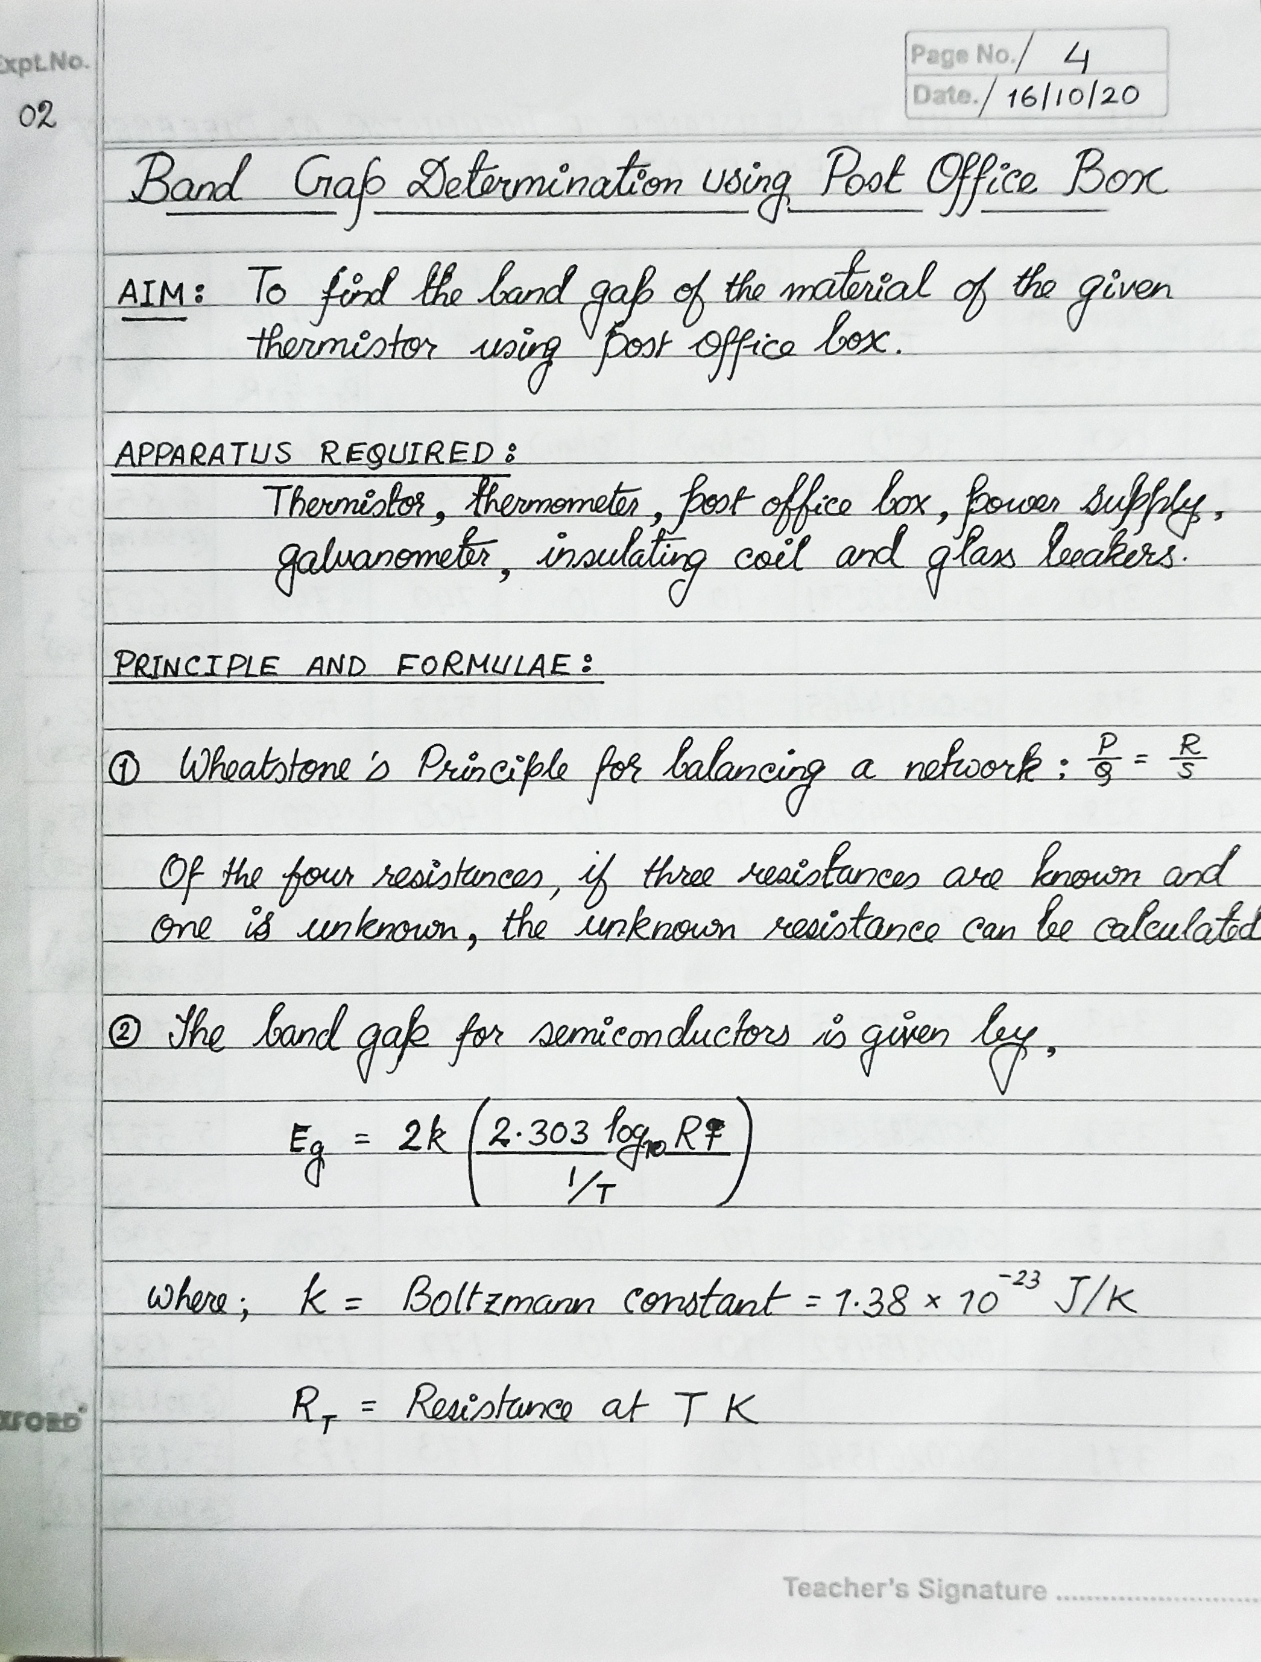 Expt.No.
02
Page No./ 4
Date./ 16/10/20
Band Gap Determination using Post Office Box
AIM: To find the band gap of the material of the given
thermistor using post office box.
APPARATUS REQUIRED:
Thermistor, thermometer, post office box, power supply,
galvanometer, insulating coil and glass beakers.
PRINCIPLE AND FORMULAE:
① Wheatstone's Principle for balancing a network: P/Q = R/S
Of the four resistances, if three resistances are known and
one is unknown, the unknown resistance can be calculated
② The band gap for semiconductors is given by,
Eg = 2k (2.303 log₁₀ R_T / 1/T)
where; k = Boltzmann constant = 1.38 × 10⁻²³ J/K
R_T = Resistance at T K
XFORD
Teacher's Signature ..................